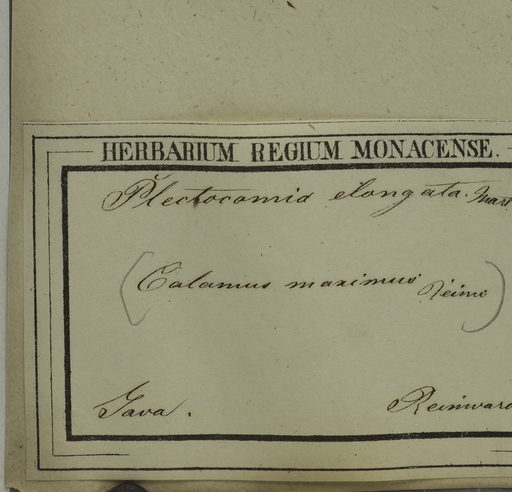 HERBARIUM REGIUM MONACENSE.
Plectocomia elongata. Mart
(Calamus maximus Reinw)
Java. Reinward